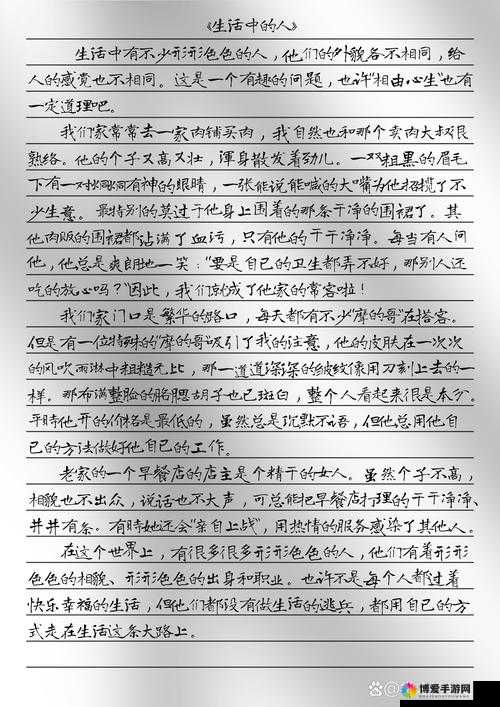 《生活中的人》
生活中有不少形形色色的人，他们的外貌各不相同，给
人的感觉也不相同。这是一个有趣的问题，也许“相由心生”也有
一定道理吧。
我们家常常去一家肉铺买肉，我自然也和那个卖肉大叔很
熟络。他的个子又高又壮，浑身散发着劲儿。一双粗黑的眉毛
下有一对炯炯有神的眼睛，一张能说能喊的大嘴为他招揽了不
少生意。最特别的莫过于他身上围着的那条干净的围裙了。其
他肉贩的围裙都沾满了血污，只有他的干干净净。每当有人问
他，他总是爽朗地一笑：“要是自己的卫生都弄不好，那别人还
吃的放心吗？”因此，我们就成了他家的常客啦！
我们家门口是繁华的路口，每天都有不少“摩的哥”在搭客。
但是有一位特殊的“摩的哥”吸引了我的注意，他的皮肤在一次次
的风吹雨淋中粗糙无比，那一道道深深的皱纹像用刀刻上去的一
样。那布满整脸的胳腮胡子也已斑白，整个人看起来很是本分。
平时他开的价格是最低的，虽然总是沉默不语，但他总用他自
己的方法做好他自己的工作。
老家的一个早餐店的店主是个精干的女人。虽然个子不高，
相貌也不出众，说话也不大声，可总能把早餐店打理的干干净净、
井井有条。有时她还会“亲自上战”，用热情的服务感染了其他人。
在这个世界上，有很多很多形形色色的人，他们有着形形
色色的相貌、形形色色的出身和职业。也许不是每个人都过着
快乐幸福的生活，但他们都没有做生活的逃兵，都用自己的方
式走在生活这条大路上。
博爱手游网